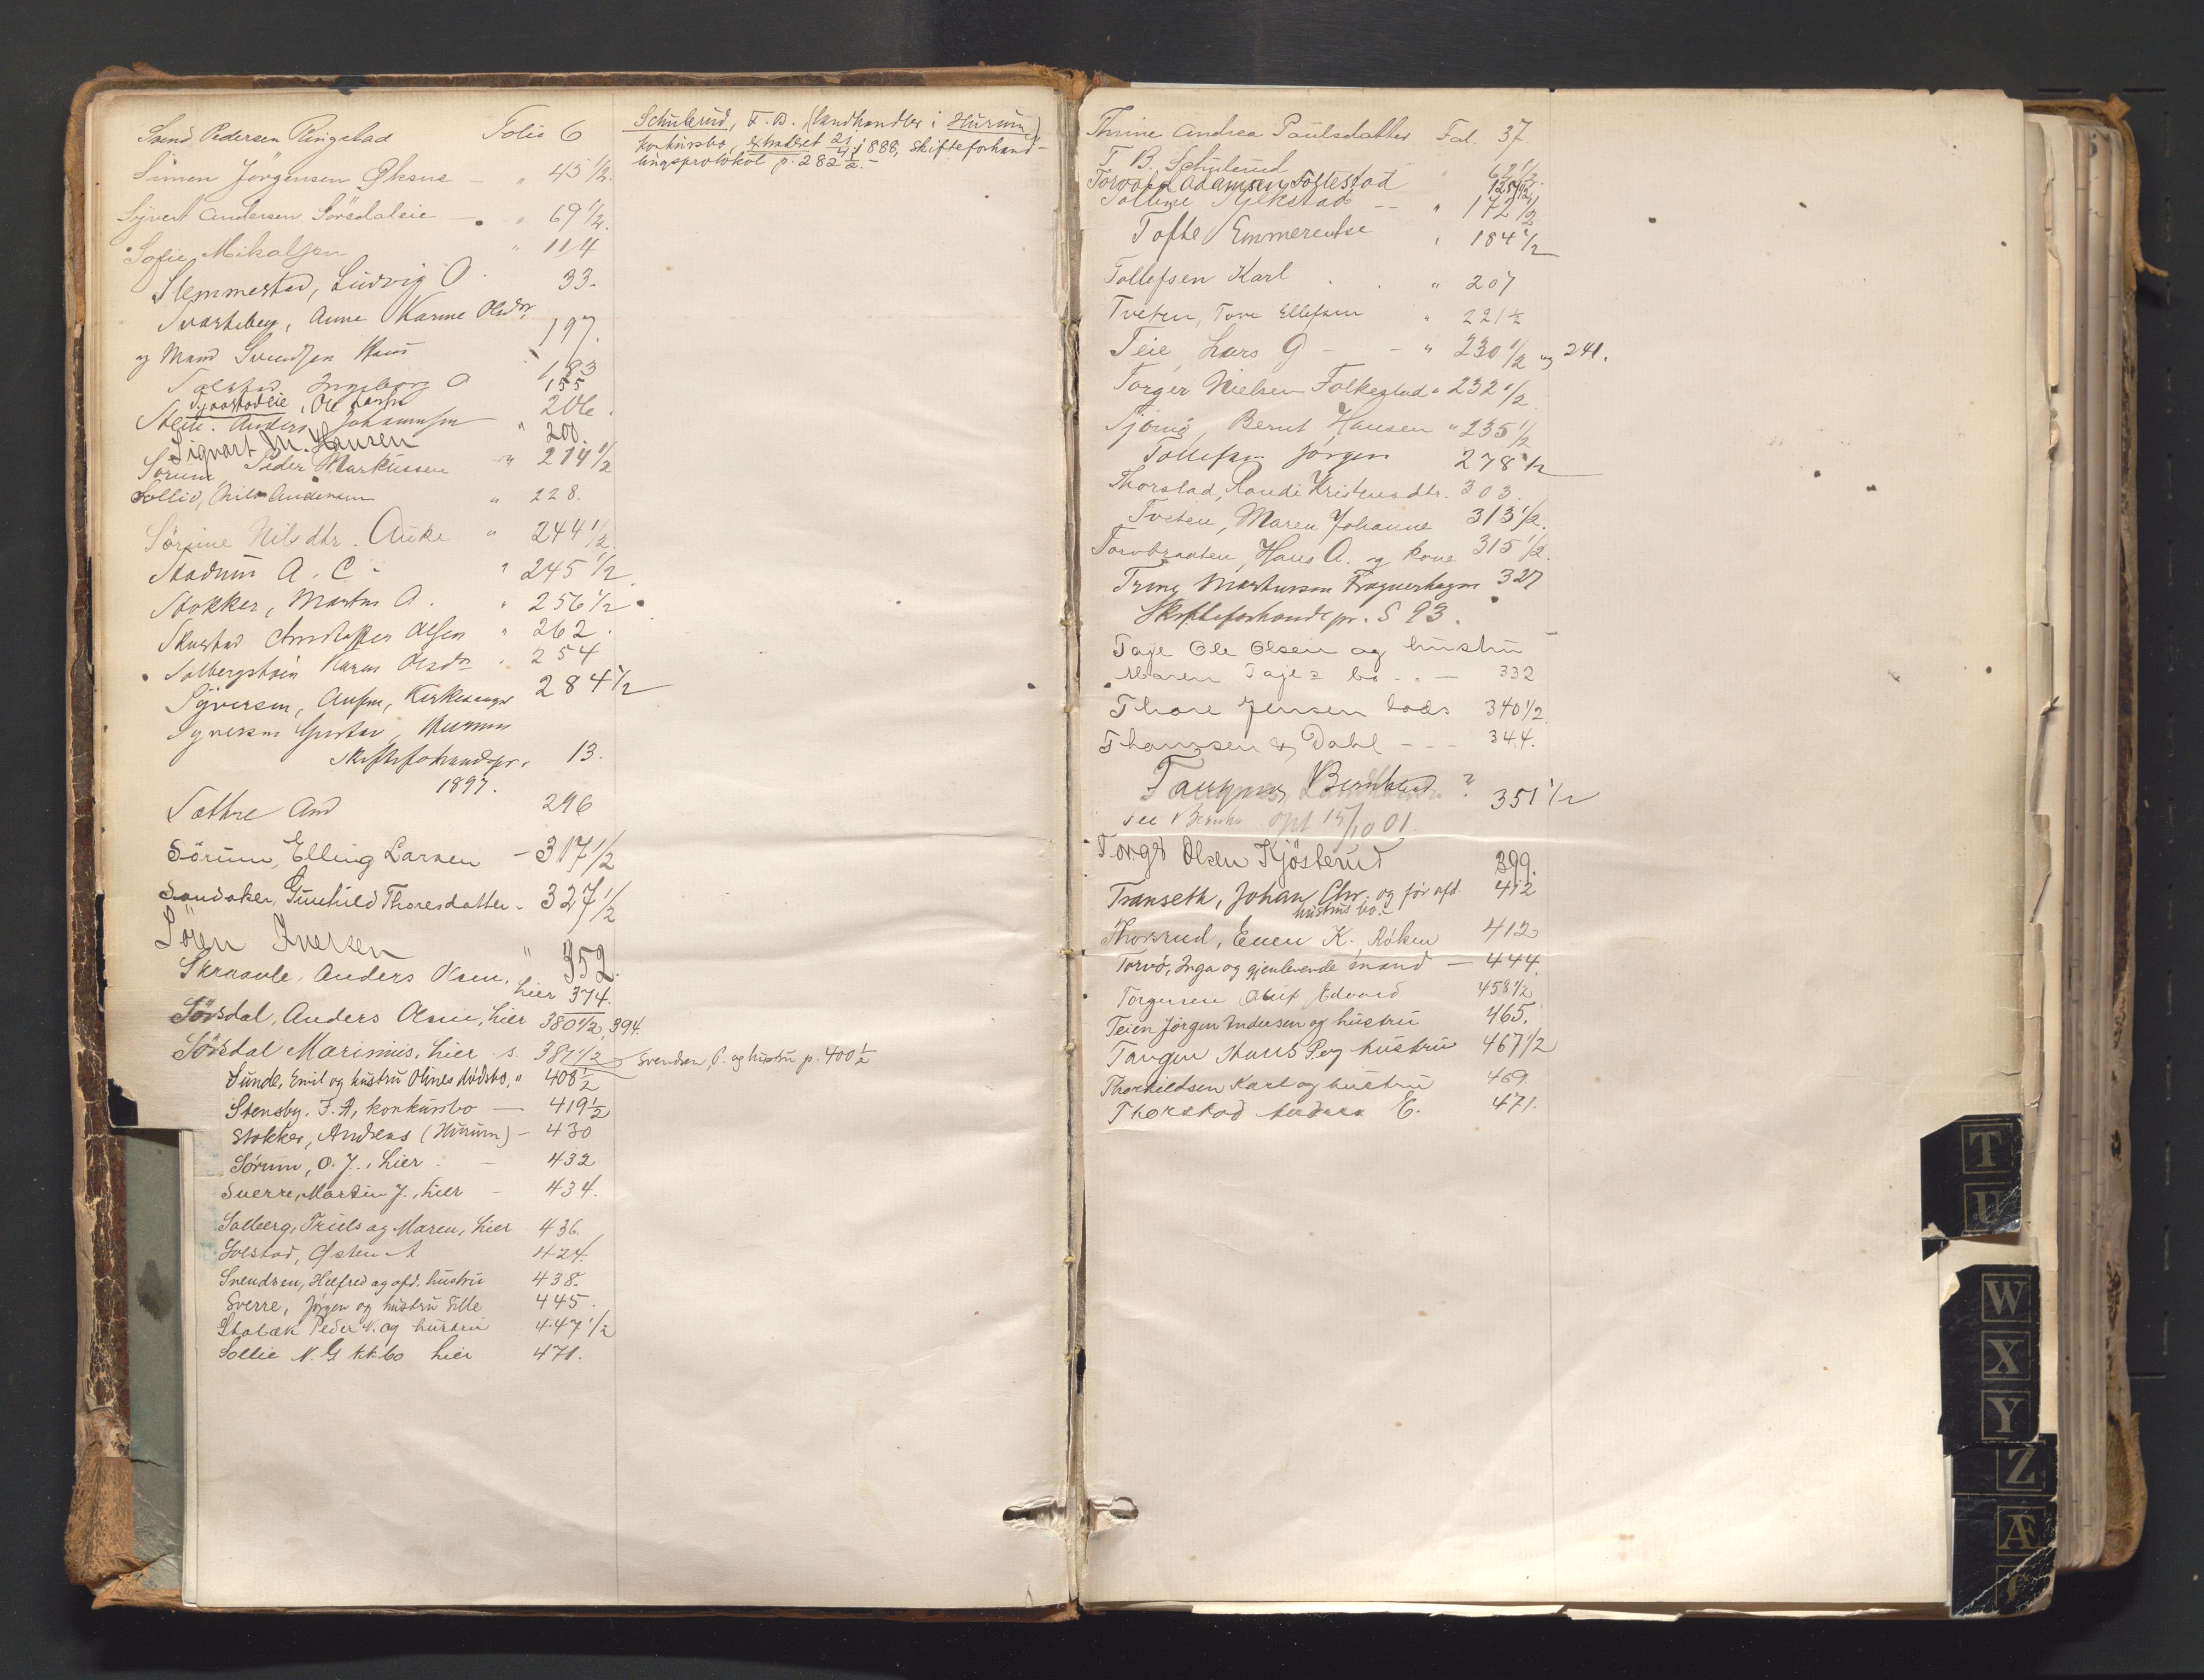 Svend Pedersen Ringstad Folio 6
Simen Jörgensen Øksne — " 45 1/2.
Syvert Andersen Sörsdaleie — " 69 1/2.
Sofie Mikalsen " 114
Slemmestad, Ludvig O. 33.
Svarteberg, Anne Karine Olsdr,
og Mand Svendsen Hans 197.
Solstad Ingeborg O 183
Tjaastadeie, Ole 155
Sten. Anders Johannsen " 206.
Sigvart M. Hansen 200.
Sörum Peder Markussen " 214 1/2
Sollid, Nils Andersen " 228.
Sörine Nilsdtr. Auke " 244 1/2.
Stadum A. C. " 245 1/2.
Stokker, Martin A. " 256 1/2
Skustad Christoffer Olsen " 262.
Solbergstøen Karen Olsdr " 254
Syversen, Anton, Kirkesanger 284 1/2
Syversen Gustav, Hurum
Skifteforhandspr. 13.
1897.
Sæthre And 296
Sörum, Elling Larsen — 317 1/2
Sandaker, Gunhild Thoresdatter - 327 1/2
Sören Iversen " 352.
Skraavle, Anders Olsen, hier 374.
Sörsdal, Anders Olsen, hier 380 1/2, 394.
Sörsdal Marinius, hier s. 387 1/2 Svendsen, O. og hustru p. 400 1/2
Sunde, Emil og hustru Olines dødsbo, " 408 1/2
Stensby. F. A, konkursbo — 419 1/2
Stokker, Andreas (Hurum) — 430
Sörum, O. J., hier — 432
Sverre, Martin J., hier — 434.
Solberg, Truls og Maren, hier 436.
Solstad, Østen A 424.
Svendsen, Helfred og afd. hustru 438.
Sverre, Jörgen og hustru Sille 445.
Stabæk Peder N. og hustru 447 1/2
Sollie N. G kk.bo hier 471.
Schulerud, T. B. (landhandler i Hurum)
konkursbo, extraderet 21/4 1888, Skifteforhand-
lingsprotokol p. 282 1/2. -
Thrine Andrea Paulsdatter Fol. 37.
T. B. Schulerud " 62 1/2.
Torvald Adamsen Toftestad 125 1/2
Tolline Gjekstad — " 172 1/2
Tofte Emmerentse " 184 1/2
Tollefsen Karl " 207
Tveten, Tore Ellefsen " 221 1/2
Teie, Lars G — " 230 1/2 og 241.
Torger Nielsen Folkestad " 232 1/2
Tjömö, Bernt Hansen " 235 1/2
Tollefsen Jörgen 278 1/2
Thorstad, Randi Kristensdtr. 303.
Tveten, Maren Johanne 313 1/2.
Torvbraaten, Hans A. og kone 315 1/2.
Trine Martinsen Fragnerhagen 327
Skifteforhandlpr. S 93.
Taje Ole Olsen og hustru
Maren Tajes bo — 332
Thore Jensen bods 340 1/2.
Thomsen & Dahl — 344.
Tangnes, Bernhard ? 351 1/2
se Bernha opt 15/10 01
Torger Olsen Kjösterud 399.
Transeth, Johan Chr. og før afd. 412
hustrus bo.
Thorsrud, Even K. Röken 412
Torvö, Inga og gjenlevende mand — 444.
Torgersen Oluf Edvard 458 1/2
Teien Jörgen Andersen og hustru 465.
Tangen Hans P. og hustru 467 1/2
Thorkildsen Karl og hustru 469.
Thorstad Anders E. 471.
T
U
W
X
Y
Z
Æ